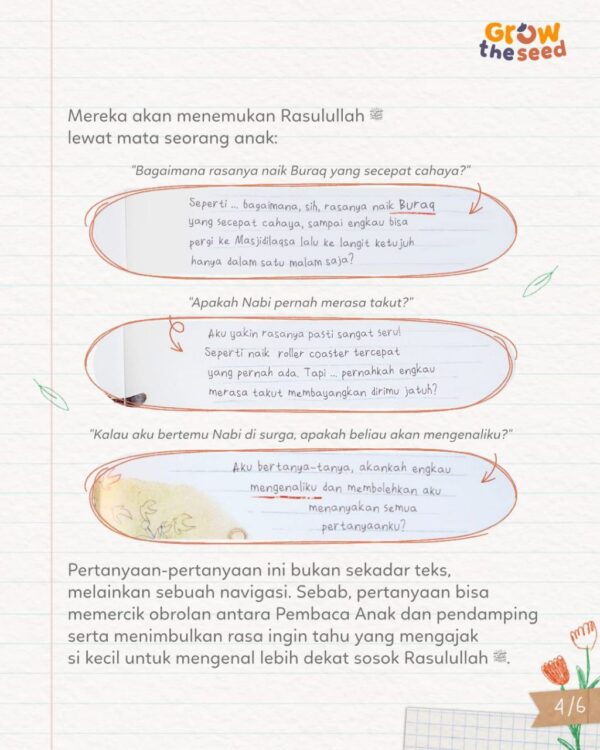 Grow
the seed
Mereka akan menemukan Rasulullah ﷺ
lewat mata seorang anak:
"Bagaimana rasanya naik Buraq yang secepat cahaya?"
Seperti ... bagaimana, sih, rasanya naik Buraq
yang secepat cahaya, sampai engkau bisa
pergi ke Masjidilaqsa lalu ke langit ketujuh
hanya dalam satu malam saja?
"Apakah Nabi pernah merasa takut?"
Aku yakin rasanya pasti sangat seru!
Seperti naik roller coaster tercepat
yang pernah ada. Tapi ... pernahkah engkau
merasa takut membayangkan dirimu jatuh?
"Kalau aku bertemu Nabi di surga, apakah beliau akan mengenaliku?"
Aku bertanya-tanya, akankah engkau
mengenaliku dan membolehkan aku
menanyakan semua
pertanyaanku?
Pertanyaan-pertanyaan ini bukan sekadar teks,
melainkan sebuah navigasi. Sebab, pertanyaan bisa
memercik obrolan antara Pembaca Anak dan pendamping
serta menimbulkan rasa ingin tahu yang mengajak
si kecil untuk mengenal lebih dekat sosok Rasulullah ﷺ.
4/6